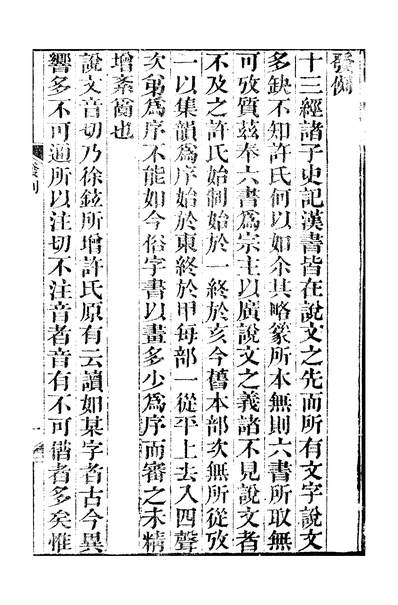 發例
十三經諸子史記漢書皆在說文之先而所有文字說文
多缺不知許氏何以如余其略篆所本無則六書所取無
可攷質茲奉六書爲宗主以廣說文之義諸不見說文者
不及之許氏始制始於一終於亥今舊本部次無所從攷
一以集韻爲序始於東終於甲每部一從平上去入四聲
次第爲序不能如今俗字書以畫多少爲序而審之未精
增紊簡也
說文音切乃徐鉉所增許氏原有云讀如某字者古今異
響多不可通所以注切不注音者音有不可借者多矣惟